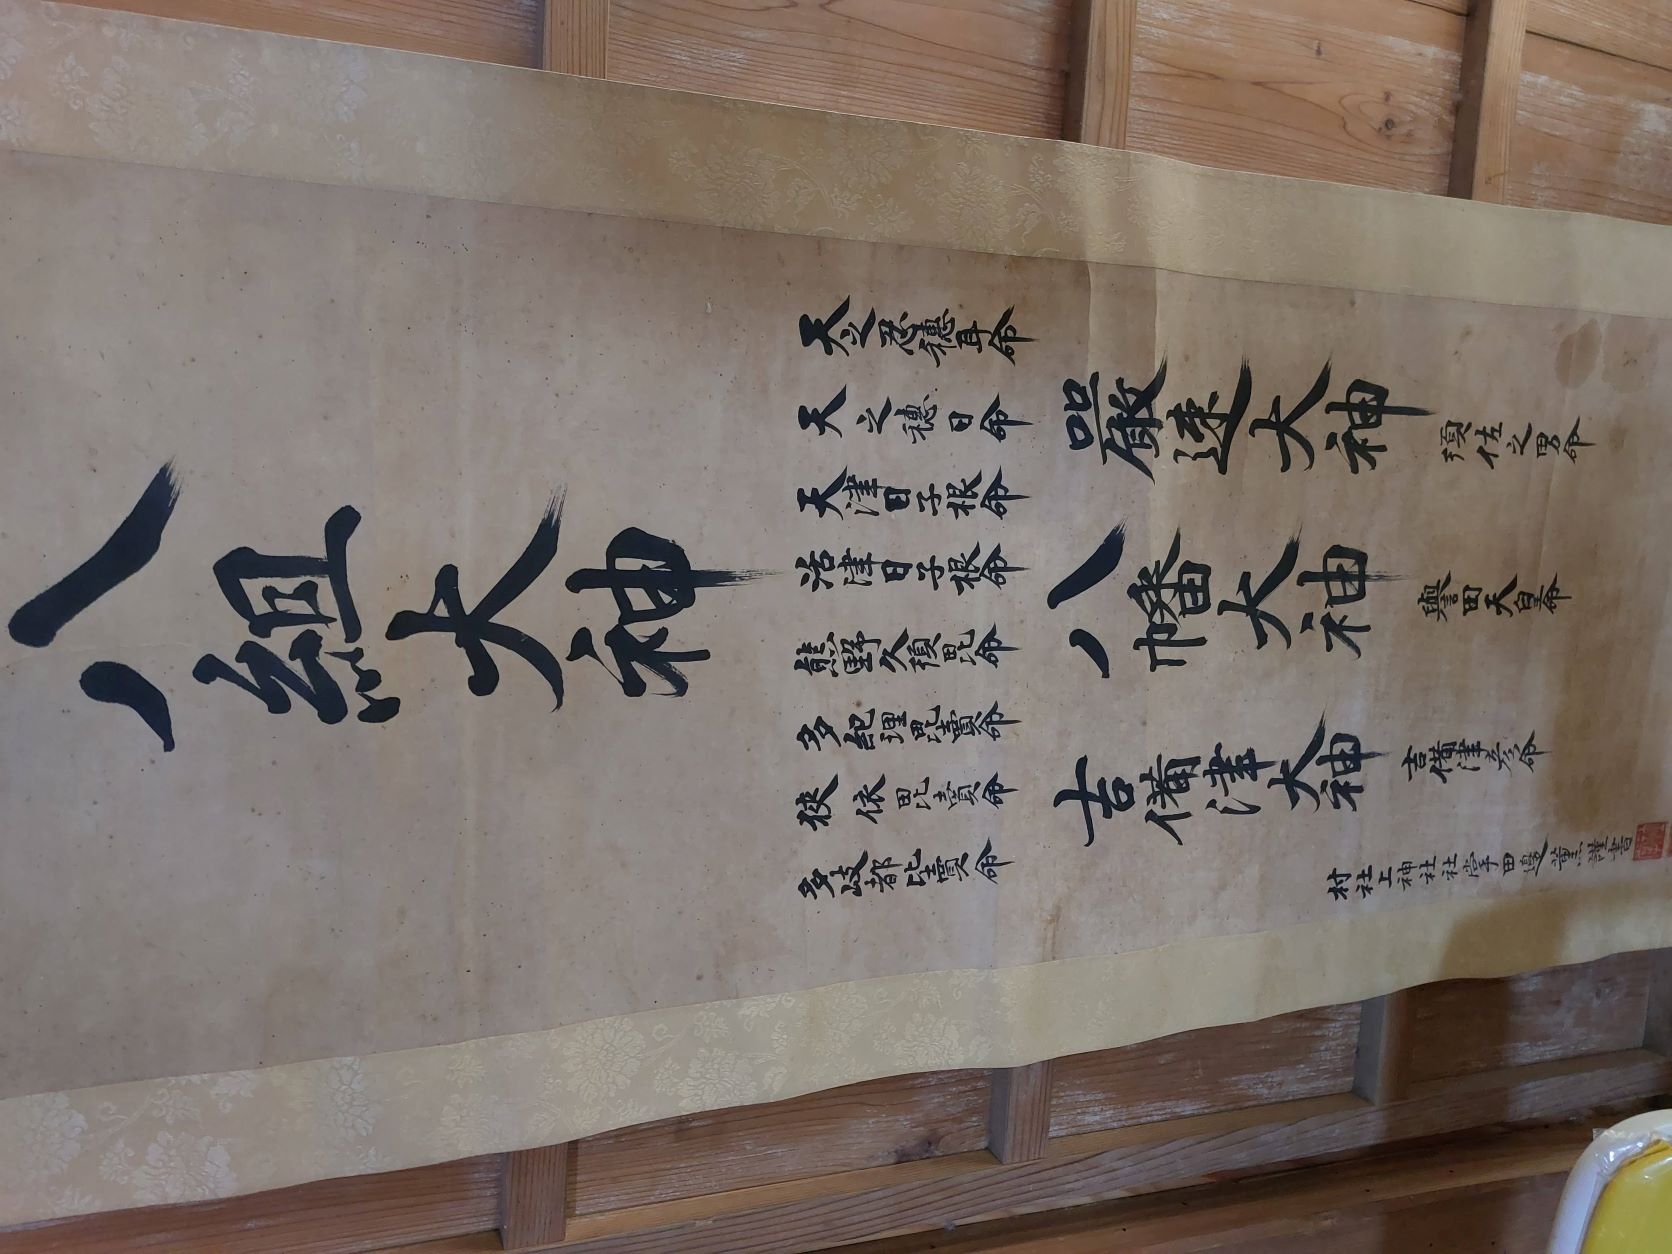 八組大神
天之忍穂耳命
天之穂日命
天津日子根命
活津日子根命
熊野久須毘命
多紀理毘賣命
狭依毘賣命
多岐都比賣命
嚴速大神
須佐之男命
八幡大神
譽田天皇命
吉備津大神
吉備津彦命
村社上神社社掌田邊薫謹書